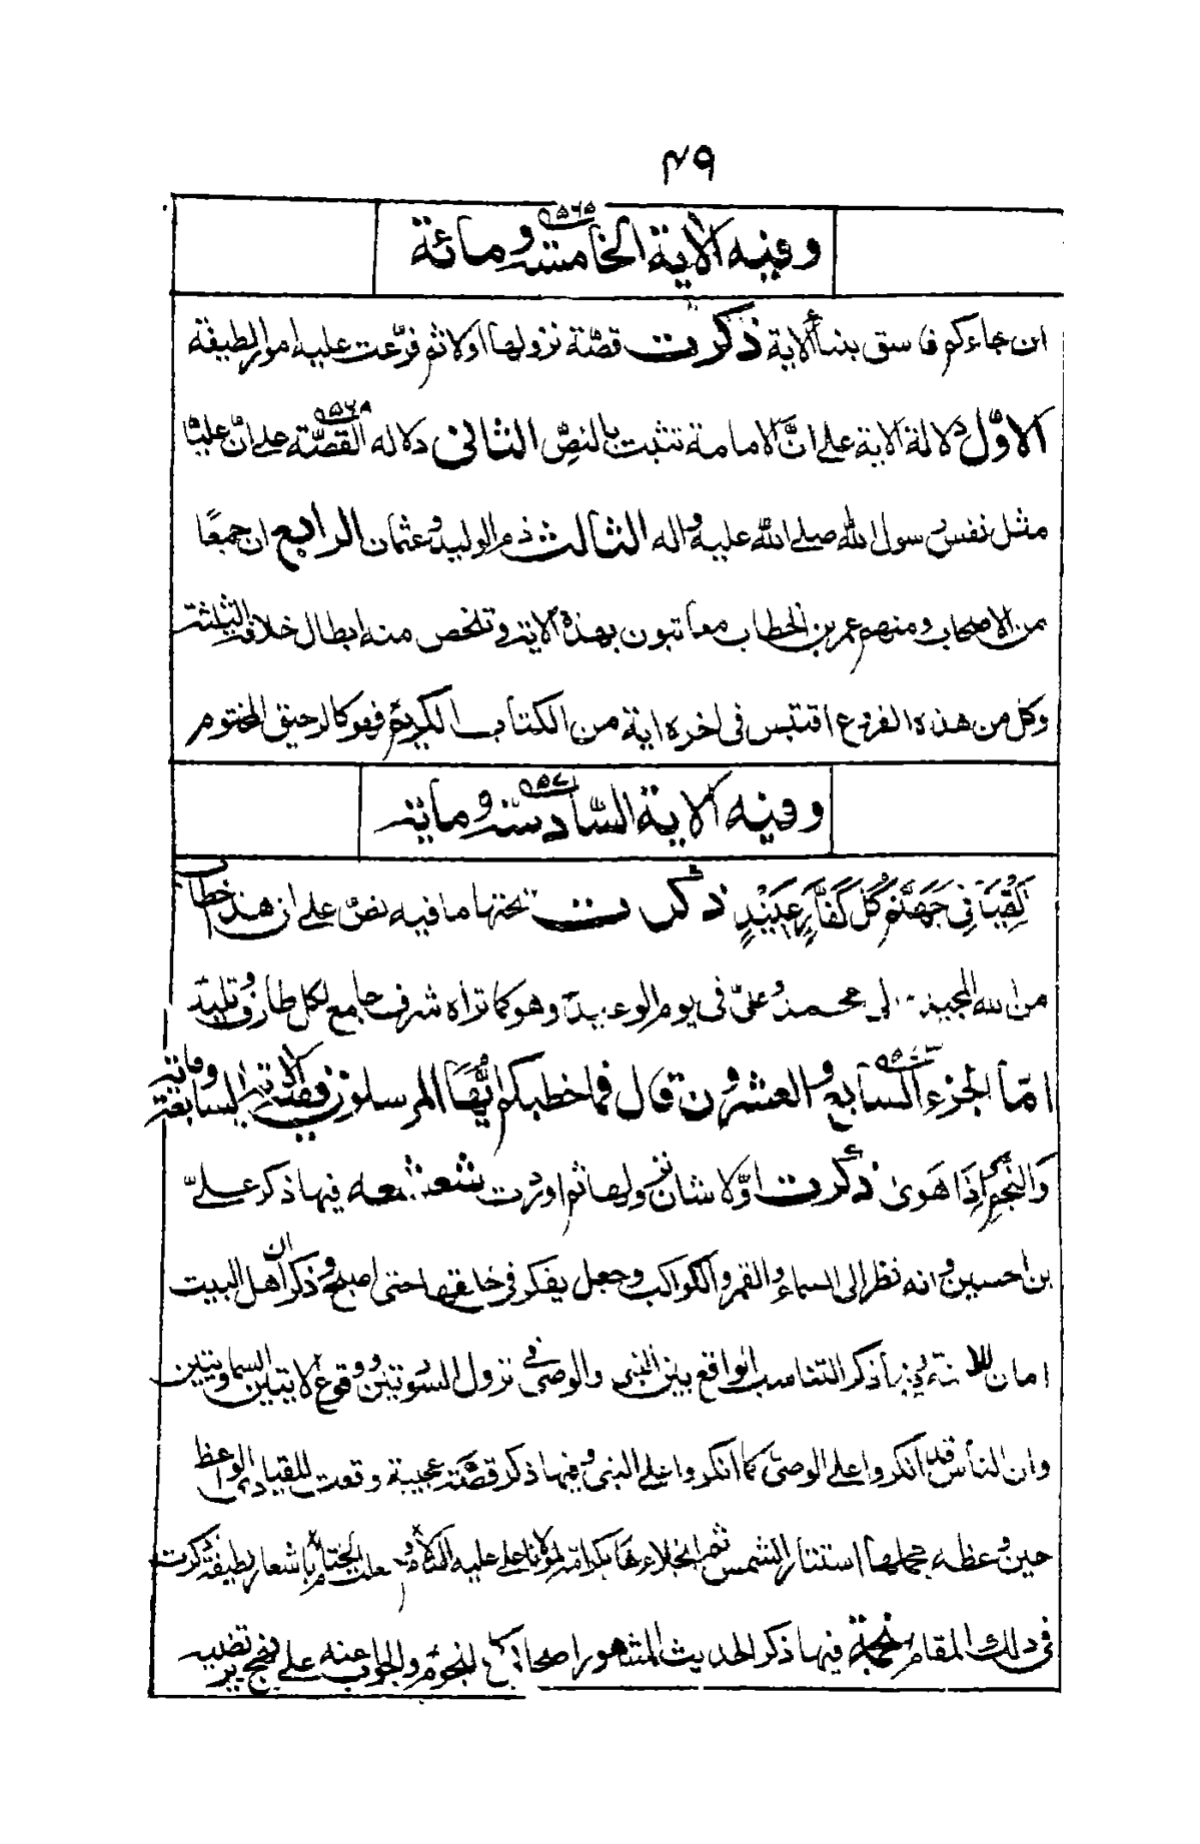 ۴۹
۵۶۵
وفيه الاية الخامسة ومائة
ان جاءكم فاسق بنبأ الاية ذكرت قصّة نزولها اولا ثم فرّعت عليه امور لطيفة
الاوّل دلالة الاية على انّ الامامة تثبت بالنصّ الثانى دلاله القصّة على انّ عليّا
مثل نفس رسول الله صلى الله عليه واله الثالث ذم الوليد وعثمان الرابع ان جمعًا
من الاصحاب ومنهم عمر بن الخطاب معاتبون بهذه الاية وتلخص منه ابطال خلافة الثلثة
وكل من هذه الفروع اقتبس فى اخره اية من الكتاب الكريم فهو كالرحيق المختوم
وفيه الاية السّادسة ومائة
اَلْقِيَا فِي جَهَنَّمَ كُلَّ كَفَّارٍ عَنِيْدٍ ذكرت تحتها ما فيه نصّ على ان هذا خطاب
من الله المجيد الى محمد وعلىّ فى يوم الوعيد وهو كما تراه شرف جامع لكل طارف وتليد
امّا الجزء السابع والعشرون قال فما خطبكم ايّها المرسلون ففيه الاية السابعة ومائة
وَالنَّجْمِ اِذَا هَوىٰ ذكرت اوّلا شان نزولها ثم اوردت شعشعه فيها ذكر علىّ
بن الحسين وانه نظر الى السماء والقمر والكواكب وجعل يفكر فى خلقها حتى اصبح وذكر ان اهل البيت
امان ذكر التناسب الواقع بين النبى والوصى فى نزول السورتين ووقوع الايتين السماويتين
وان الناس قد انكروا على الوصىّ كما انكروا على النبى وفيها ذكر قصّة عجيبة وقعت للقيادى الواعظ
حين وعظه مجملها استتار الشمس ثم انجلاءها بكرامة لمولانا على عليه السّلام باشعار لطيفة ذكرت
فى ذلك المقام نجمة فيها ذكر الحديث المشهور اصحابى كالنجوم والجواب عنه على نهج يرتضيه